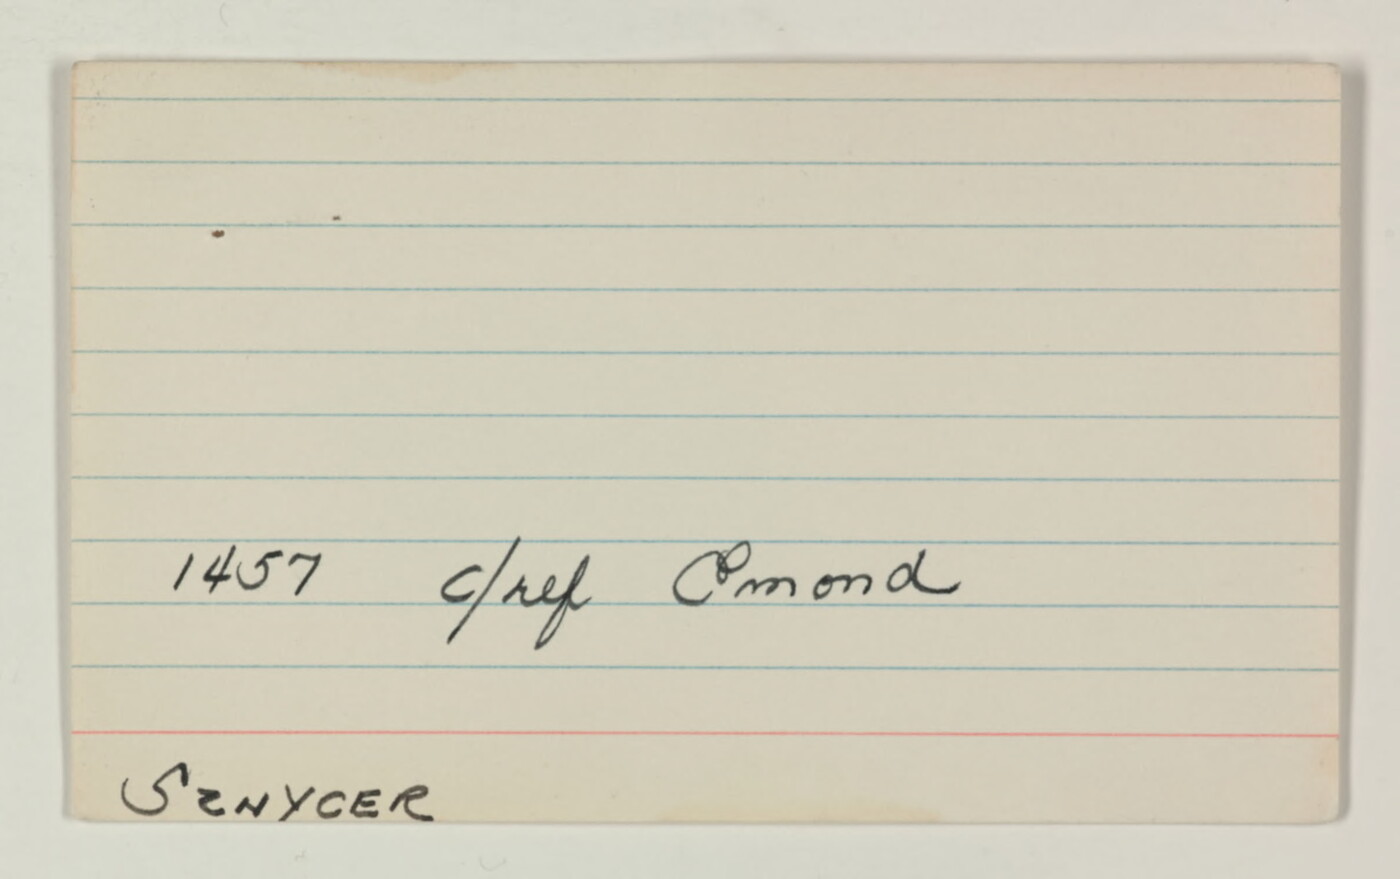 1457 c/ref Emond
SZNYCER